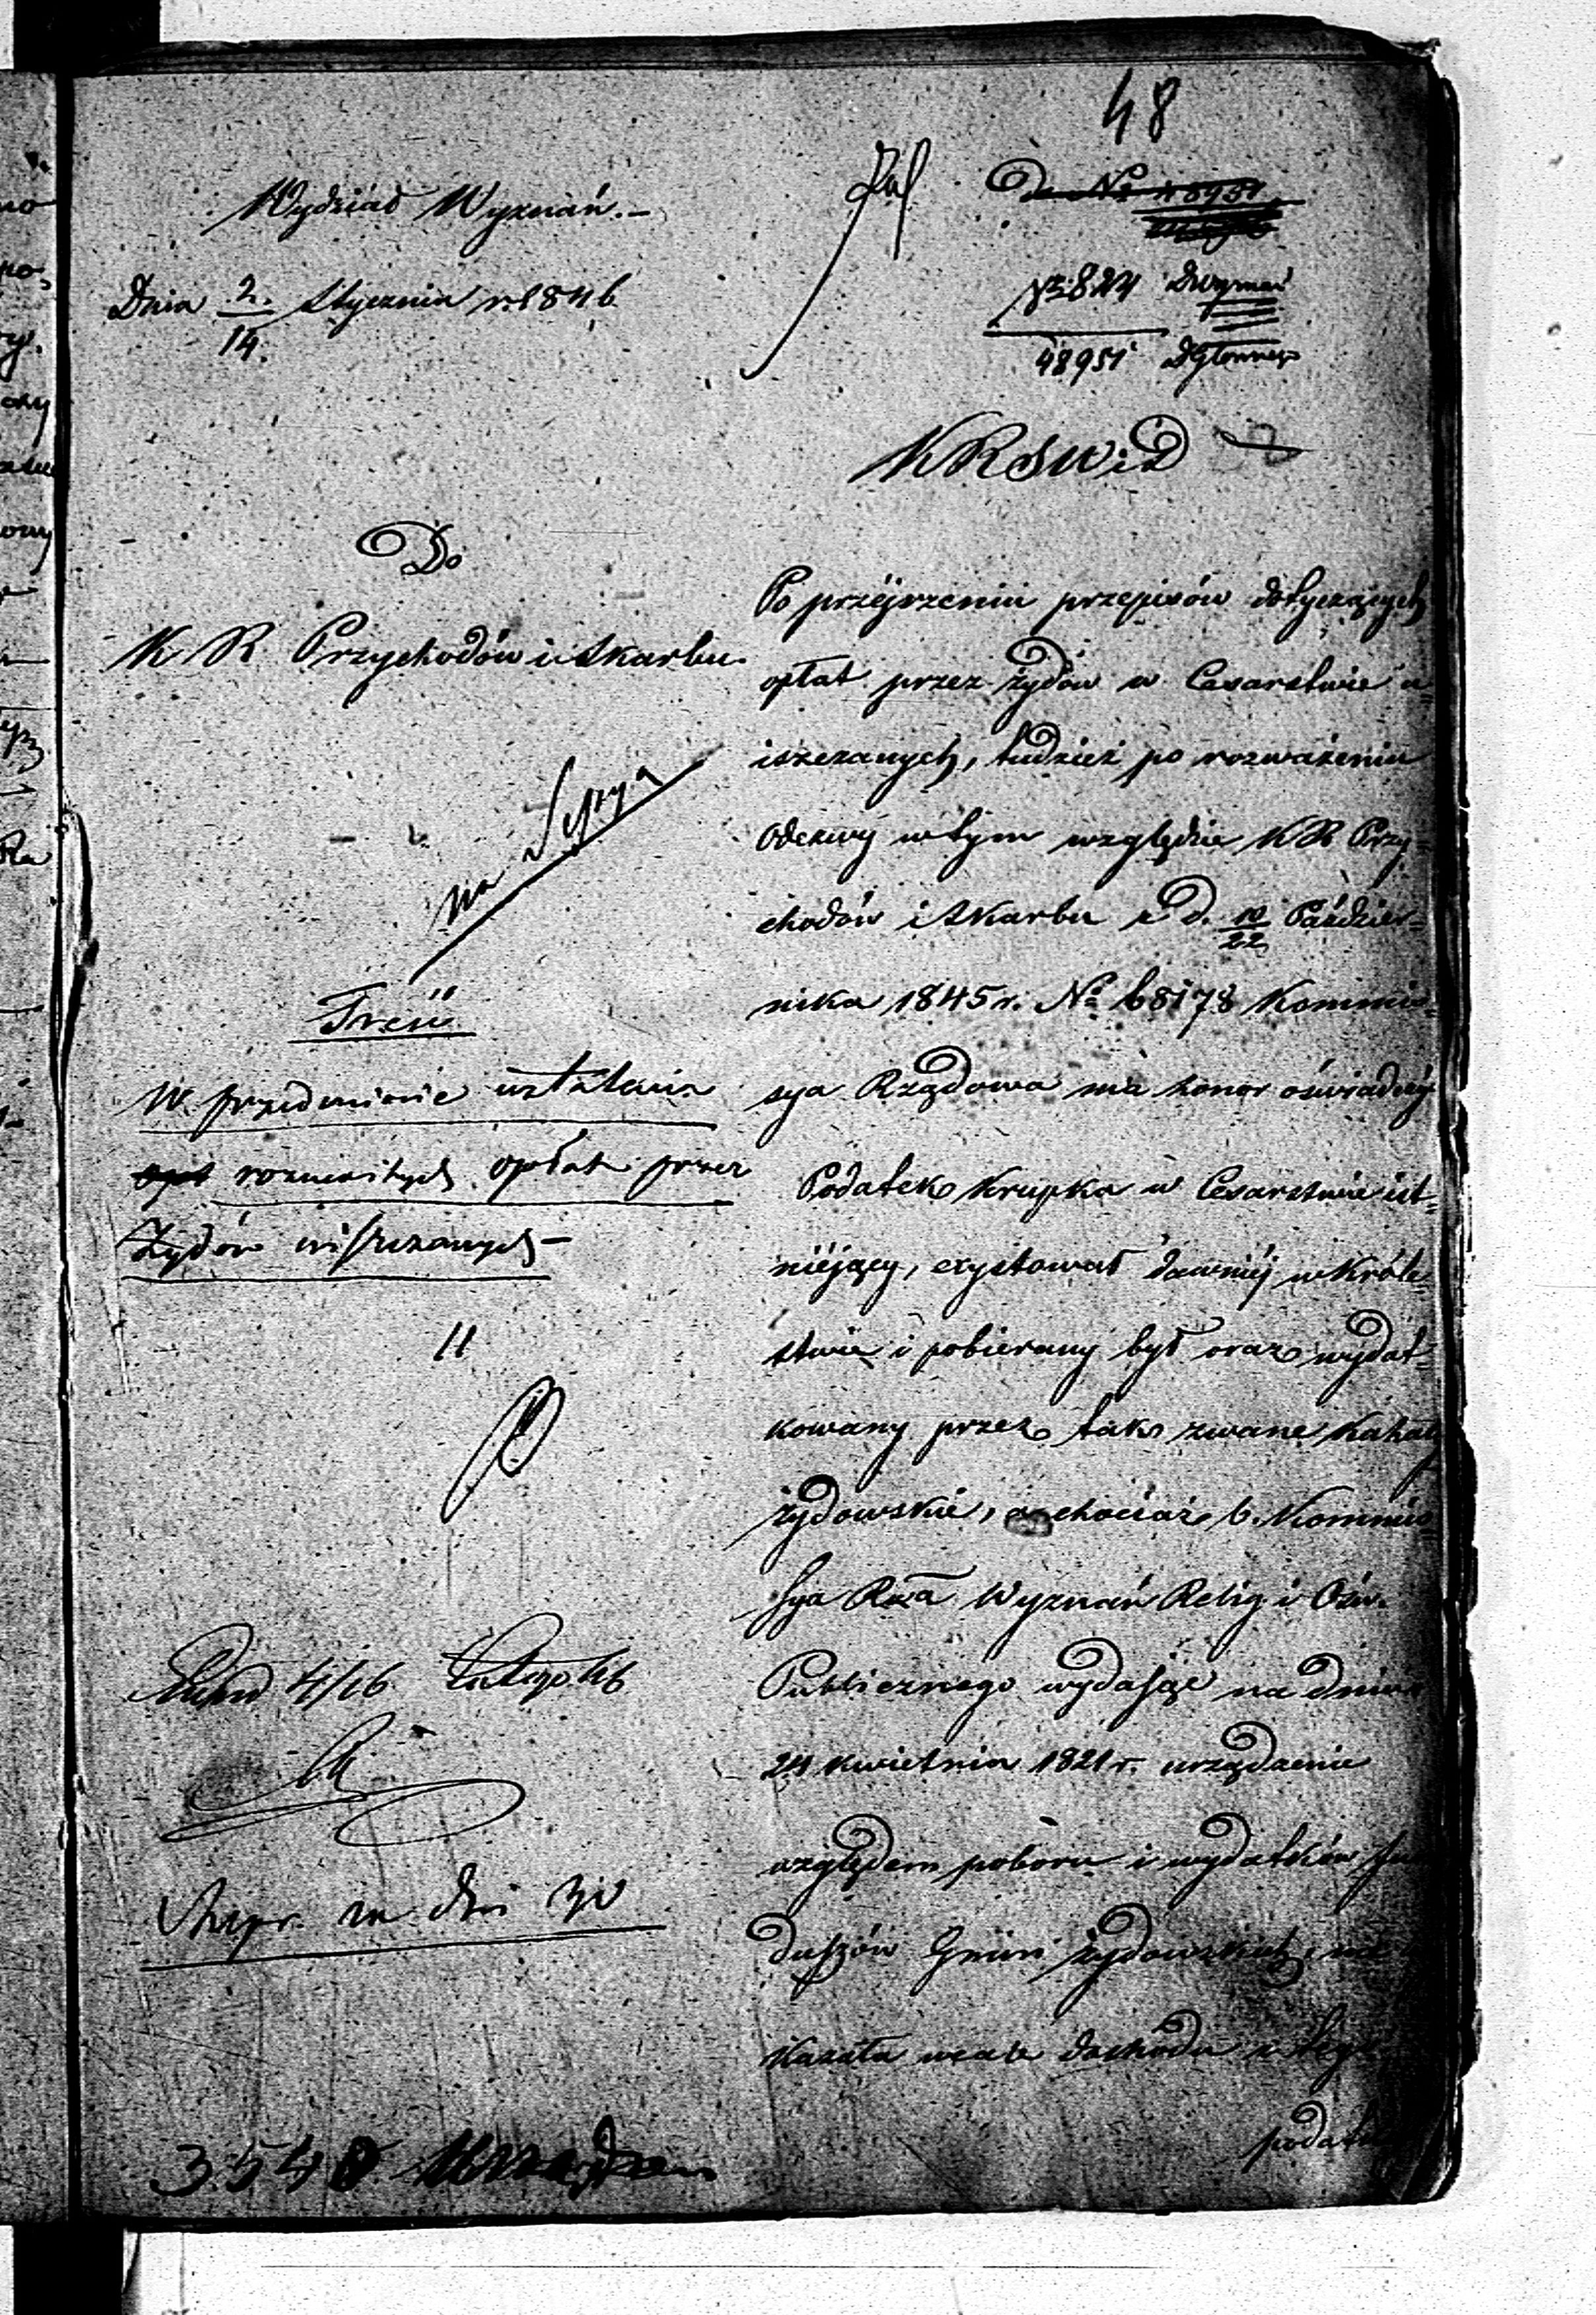 48
Wydział Wyznań. –
Do No 48951
Dnia 2/14. Stycznia r. 1846
No 824 DWyznań
48951 DGłówneg
KRSWiD
Do
K R Przychodów i Skarbu.
Treść
W przedmiocie ustalenia
rozmaitych opłat przez
Żydów uiszczanych –
4/16 Lutego 46
3548
Po przejrzeniu przepisów dotyczących
opłat przez żydów w Cesarstwie u-
iszczanych, tudzież po rozważeniu
odezwy w tym względzie KR Przy-
chodów i Skarbu z d. 10/22 Paździer-
nika 1845 r. No 68178 Kommis-
sya Rządowa ma honor oświadczyć
Podatek Krupka w Cesarstwie ist-
niejący, exystował dawniej w Króle-
stwie i pobierany był oraz wydat-
kowany przez tak zwane Kahały
żydowskie, a chociaż b. Kommis-
sya Rząa Wyznań Relig. i Ośw.
Publicznego wydając na dniu
24 kwietnia 1821 r. urządzenie
względem poboru i wydatków fun
duszów Gmin żydowskich,
kazała dochodu z tego
podatk